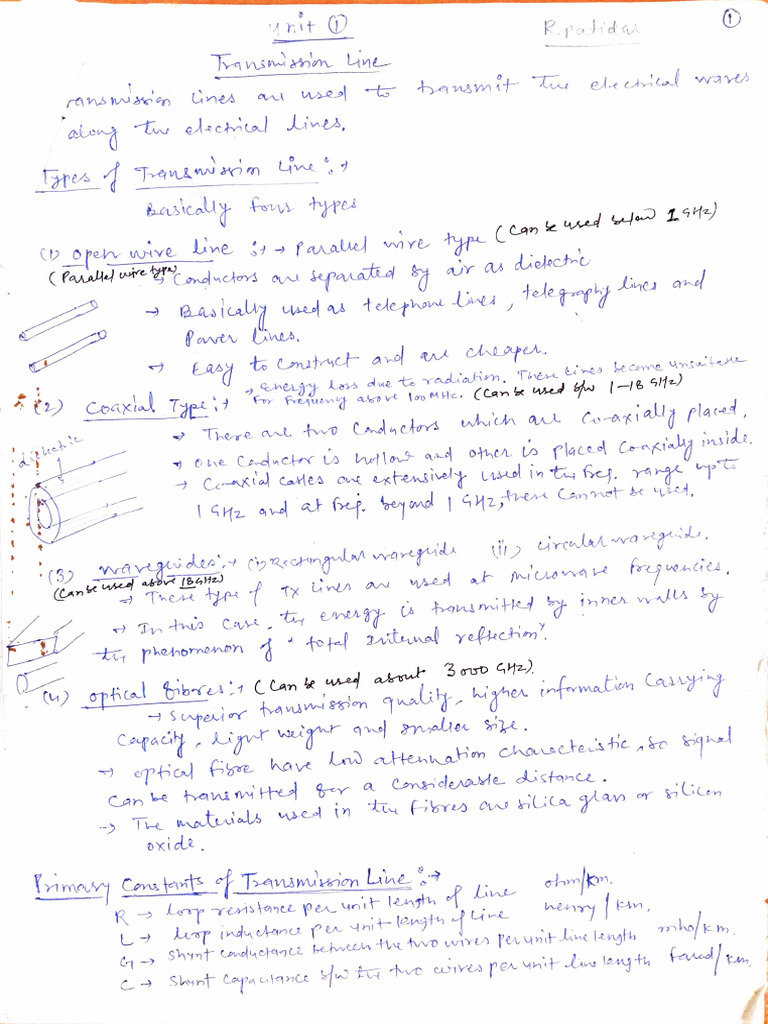 Unit ①
R. patidar
①
Transmission Line
ransmission lines are used to transmit the electrical waves
along the electrical lines.
Types of Transmission Line :→
Basically four types
(1) open wire line :→ → Parallel wire type (Can be used below 1 GHz)
(Parallel wire type) → Conductors are separated by air as dielectric
→ Basically used as telephone lines, telegraphy lines and
Power lines.
→ Easy to construct and are cheaper.
→ Energy loss due to radiation. These lines become unsuitable
For frequency above 100 MHz. (Can be used b/w 1-18 GHz)
(2) Coaxial Type :→
→ There are two conductors which are co-axially placed.
dielectric
→ one conductor is hollow and other is placed co-axially inside.
→ Co-axial cables are extensively used in the freq. range up to
1 GHz and at freq. beyond 1 GHz, these cannot be used.
(3) waveguides :→ (i) Rectangular waveguide (ii) circular waveguide.
(Can be used above 18 GHz)
→ These type of Tx lines are used at microwave frequencies.
→ In this case, the energy is transmitted by inner walls by
the phenomenon of "total internal reflection".
(4) optical fibres :→ (Can be used about 3000 GHz)
→ Superior transmission quality, higher information carrying
capacity, light weight and smaller size.
→ optical fibre have low attenuation characteristic, so signal
can be transmitted for a considerable distance.
→ The materials used in the fibres are silica glass or silicon
oxide.
Primary Constants of Transmission Line :→
R → loop resistance per unit length of line ohm/km.
L → loop inductance per unit length of line henry/km.
G → shunt conductance between the two wires per unit line length mho/km.
C → shunt capacitance b/w the two wires per unit line length farad/km.